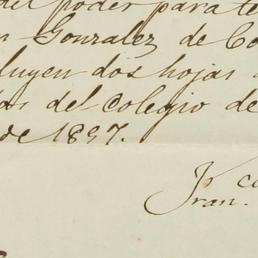 del poder para te
n Gonzalez de Co
luyen dos hojas
del Colegio de
de 1897.
Fran.co